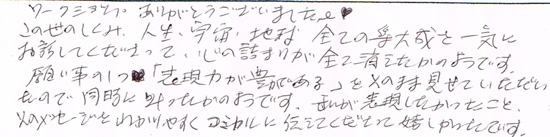 ワークショップ ありがとうございました♥
この世のしくみ、人生、宇宙、地球 全ての集大成を一気に
お話してくださって、心の詰まりが全て消えたかのようです。
願い事の1つ♥「表現力が豊かである」をそのまま見せていただい
たので同時に叶ったかのようです。私が表現したかったこと、
そのメッセージをわかりやすくコミカルに伝えてくださって嬉しかったです。